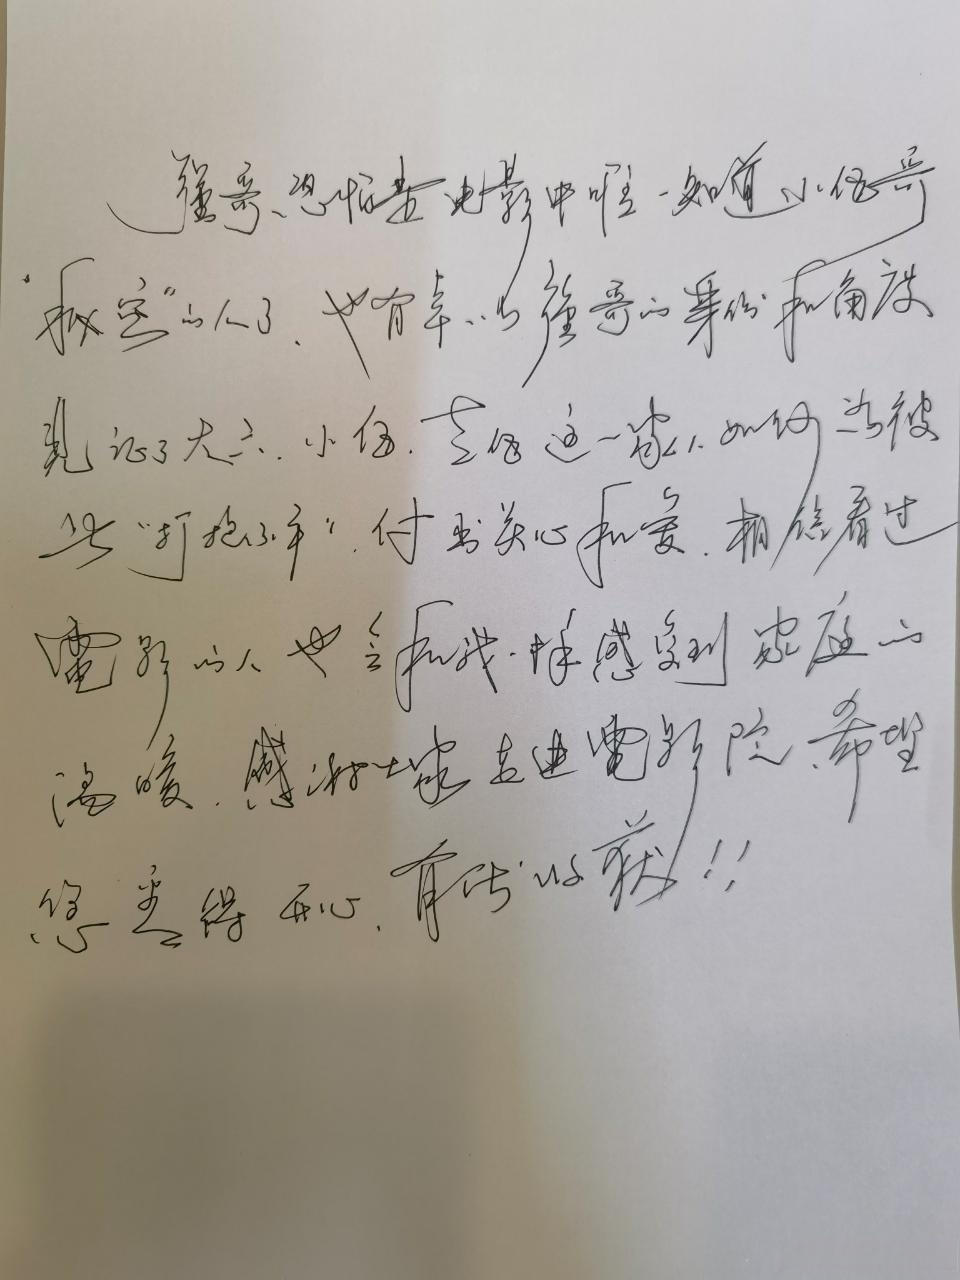 强哥、恐怕是电影中唯一知道小伍哥
“秘密”的人了、也有幸以强哥的身份和角度
见证了大六、小伍、这一家人如何为彼
此“打抱不平”,付出关心和爱、相信看过
電影的人也会和我一样感受到家庭的
温暖、感谢大家走进電影院、希望
您看得开心、有所收获!!